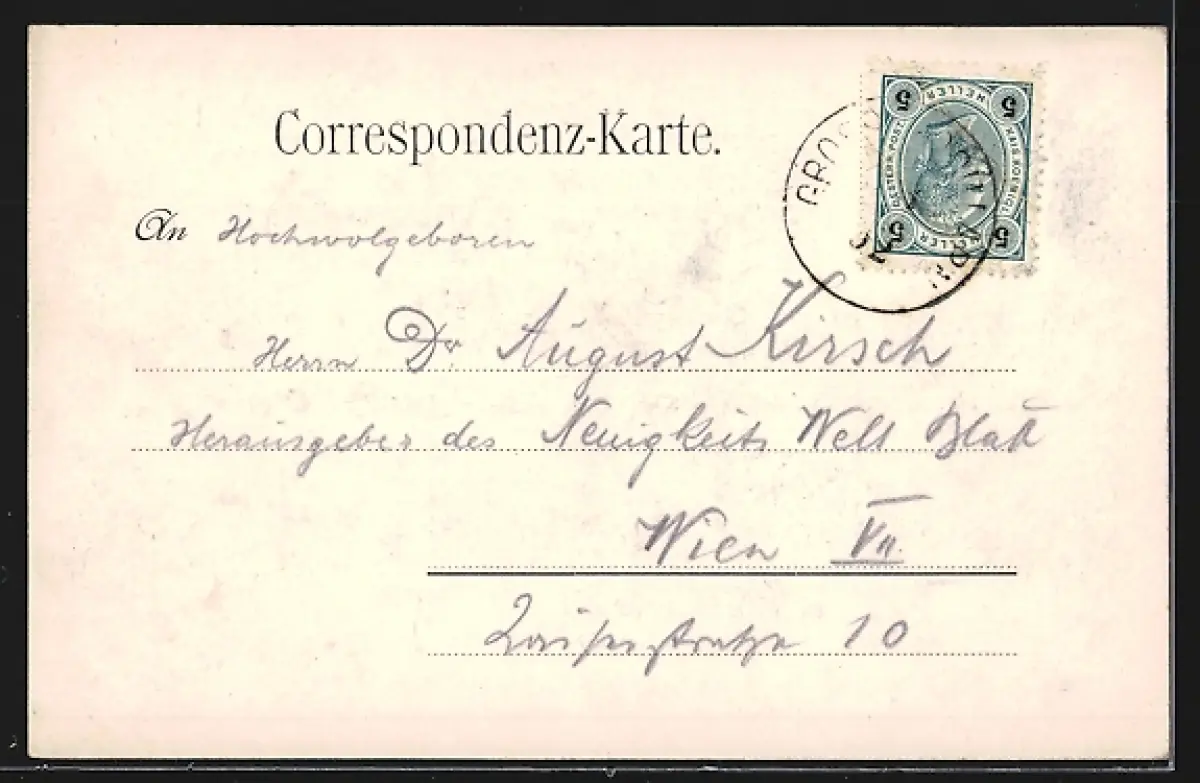 Correspondenz-Karte.
5 HELLER 5
OESTERR. POST
5 HELLER 5
An Hochwolgeboren
Herrn Dr August Kirsch
Herausgeber des Neuigkeits Welt Blatt
Wien VII.
Kaiserstraße 10